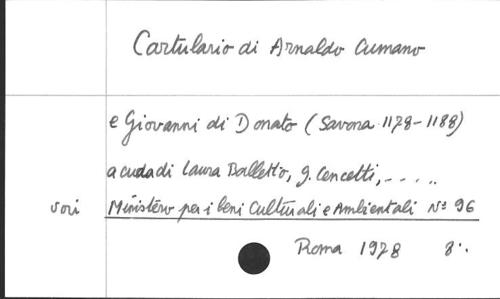 Cartulario di Arnaldo Cumano
e Giovanni di Donato (Savona 1178-1188)
a cuda di Laura Balletto, G. Cencetti, - - - . .
vori Ministero per i beni Culturali e Ambientali No 96
Roma 1978 8°.